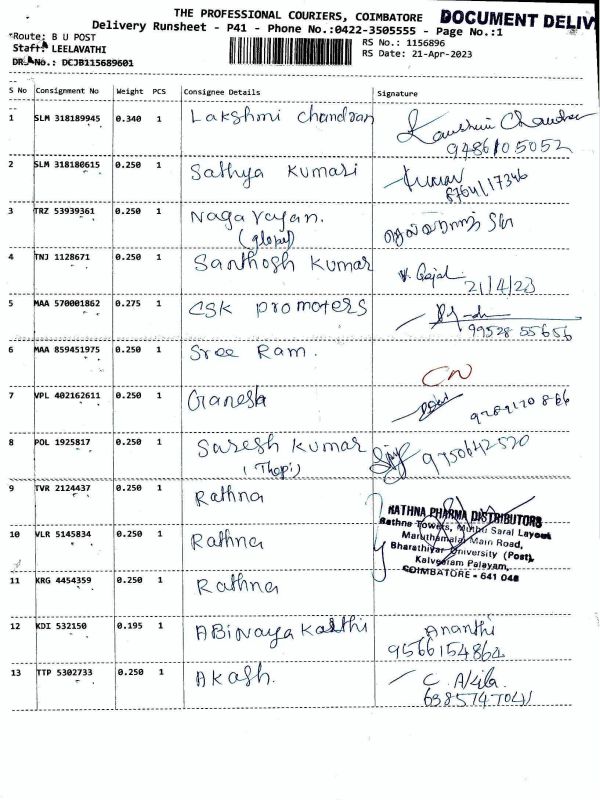 THE PROFESSIONAL COURIERS, COIMBATORE DOCUMENT DELIV
Delivery Runsheet - P41 - Phone No.:0422-3505555 - Page No.:1
*Route: B U POST RS No.: 1156896
Staff: LEELAVATHI RS Date: 21-Apr-2023
DRS No.: DCJB115689601
S No Consignment No Weight PCS Consignee Details Signature
1 SLM 318189945 0.340 1 Lakshmi Chandran
9486105052
2 SLM 318180615 0.250 1 Sathya Kumari Kumar
8764117346
3 TRZ 53939361 0.250 1 Nagarayan.
4 TNJ 1128671 0.250 1 Santhosh Kumar
21/4/23
5 MAA 570001862 0.275 1 CSK promoters
99528 55656
6 MAA 859451975 0.250 1 Sree Ram. CN
7 VPL 402162611 0.250 1 Ganesh
8 POL 1925817 0.250 1 Suresh Kumar 9750642520
(Thopi)
9 TVR 2124437 0.250 1 Rathna
10 VLR 5145834 0.250 1 Rathna
11 KRG 4454359 0.250 1 Rathna
RATHNA PHARMA DISTRIBUTORS
Rathna Towers, Muthu Saral Layout
Maruthamalai Main Road,
Bharathiyar University (Post),
Kalveeram Palayam,
COIMBATORE - 641 046
12 KDI 532150 0.195 1 ABinaya Kasthi Ananthi
9566154864
13 TTP 5302733 0.250 1 Akash. C. Akila